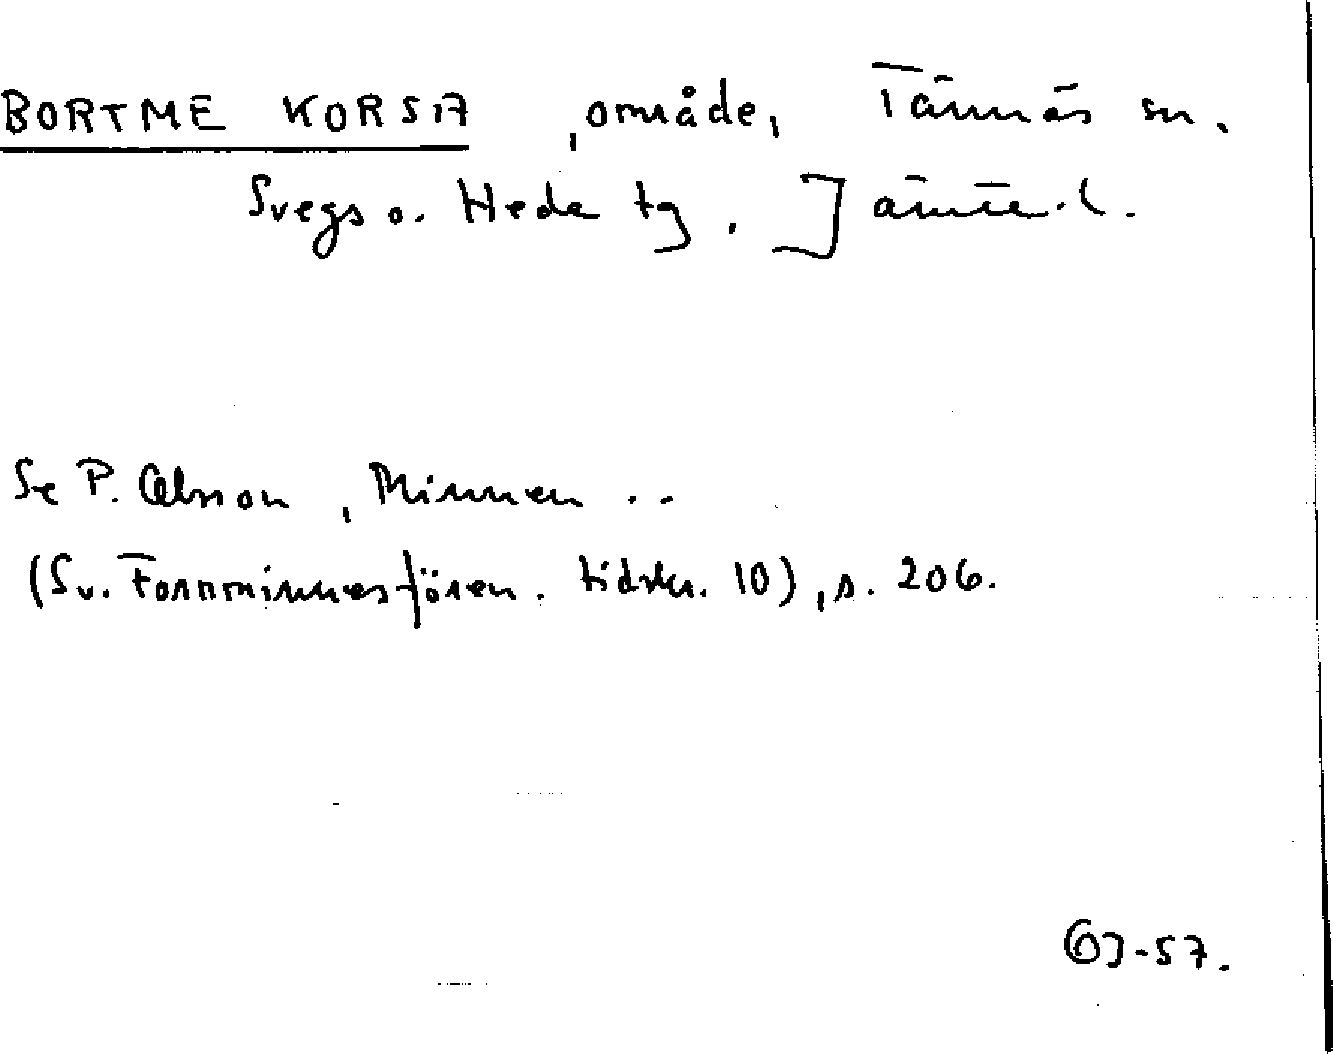 BORTME KORSA, område, Tännäs sn.
Svegs o. Hede tg. Jämtl. l.
Se P. Olsson, Minnen ..
(Sv. Fornminnesfören. tidskr. 10), s. 206.
-57.